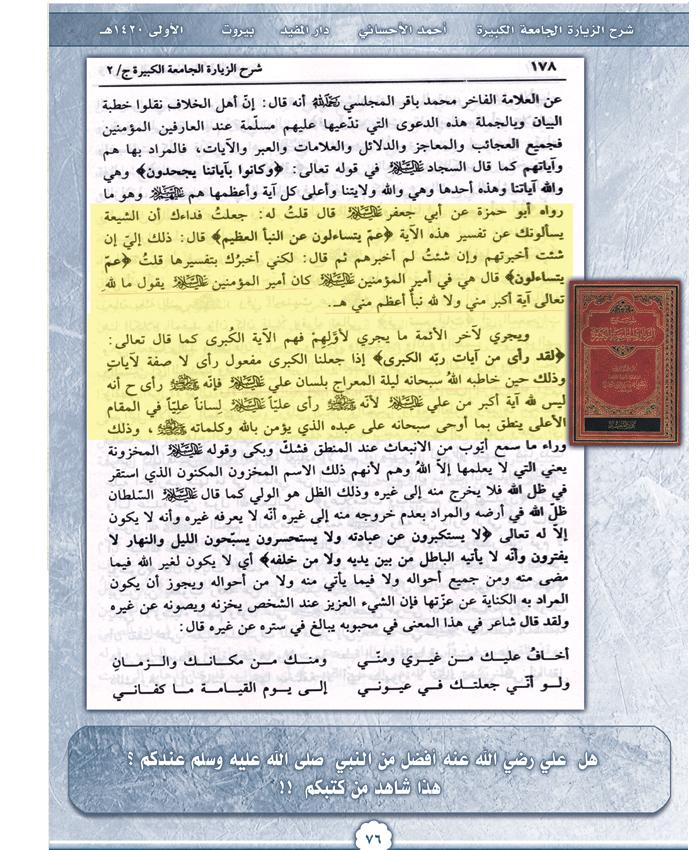 شرح الزيارة الجامعة الكبيرة أحمد الأحسائي دار المفيد بيروت الأولى ١٤٢٠هـ
١٧٨ شرح الزيارة الجامعة الكبيرة ج/٢
عن العلامة الفاخر محمد باقر المجلسي رحمه الله أنه قال: إنّ أهل الخلاف نقلوا خطبة
البيان وبالجملة هذه الدعوى التي ندّعيها عليهم مسلّمة عند العارفين المؤمنين
فجميع العجائب والمعاجز والدلائل والعلامات والعبر والآيات، فالمراد بها هم
وآياتهم كما قال السجاد عليه السلام في قوله تعالى: ﴿وكانوا بآياتنا يجحدون﴾ وهي
والله آياتنا وهذه أحدها وهي والله ولايتنا وأعلى كل آية وأعظمها هم عليهم السلام وهو ما
رواه أبو حمزة عن أبي جعفر عليه السلام قال قلتُ له: جعلتُ فداءك أن الشيعة
يسألونك عن تفسير هذه الآية ﴿عمّ يتساءلون عن النبأ العظيم﴾ قال: ذلك إليّ إن
شئت أخبرتهم وإن شئتُ لم أخبرهم ثم قال: لكني أخبرُك بتفسيرها قلتُ ﴿عمّ
يتساءلون﴾ قال هي في أمير المؤمنين عليه السلام كان أمير المؤمنين عليه السلام يقول ما للهِ
تعالى آية أكبر مني ولا لله نبأ أعظم مني هـ.
ويجري لآخر الأئمة ما يجري لأوّلِهِمْ فهم الآية الكُبرى كما قال تعالى:
﴿لقد رأى من آيات ربّه الكبرى﴾ إذا جعلنا الكبرى مفعول رأى لا صفة لآياتٍ
وذلك حين خاطبه اللهُ سبحانه ليلة المعراج بلسان علي عليه السلام فإنّه صلى الله عليه وآله رأى ح أنه
ليس لله آية أكبر من علي عليه السلام لأنّه صلى الله عليه وآله رأى عليّاً عليه السلام لِساناً عليّاً في المقام
الأعلى ينطق بما أوحى سبحانه على عبده الذي يؤمن بالله وكلماته صلى الله عليه وآله، وذلك
وراء ما سمع أيّوب من الانبعاث عند المنطق فشكّ وبكى وقوله عليه السلام المخزونة
يعني التي لا يعلمها إلاّ اللهُ وهم لأنهم ذلك الاسم المخزون المكنون الذي استقر
في ظل الله فلا يخرج منه إلى غيره وذلك الظل هو الولي كما قال عليه السلام السّلطان
ظلّ الله في أرضه والمراد بعدم خروجه منه إلى غيره أنّه لا يعرفه غيره وأنه لا يكون
إلاّ له تعالى ﴿لا يستكبرون عن عبادته ولا يستحسرون يسبّحون الليل والنهار لا
يفترون وأنّه لا يأتيه الباطل من بين يديه ولا من خلفه﴾ أي لا يكون لغير الله فيما
مضى منه ومن جميع أحواله ولا فيما يأتي منه ولا من أحواله ويجوز أن يكون
المراد به الكناية عن عزّتها فإن الشيء العزيز عند الشخص يخزنه ويصونه عن غيره
ولقد قال شاعر في هذا المعنى في محبوبه يبالغ في ستره عن غيره قال:
أخـافُ عليـك مـن غيـري ومنّـي ومنـك مـن مكـانـك والـزمـانِ
ولـو أنّـي جعلتـك فـي عيـونـي إلـى يـوم القيـامـة مـا كفـانـي
هل علي رضي الله عنه أفضل من النبي صلى الله عليه وسلم عندكم ؟
هذا شاهد من كتبكم !!
٧٦